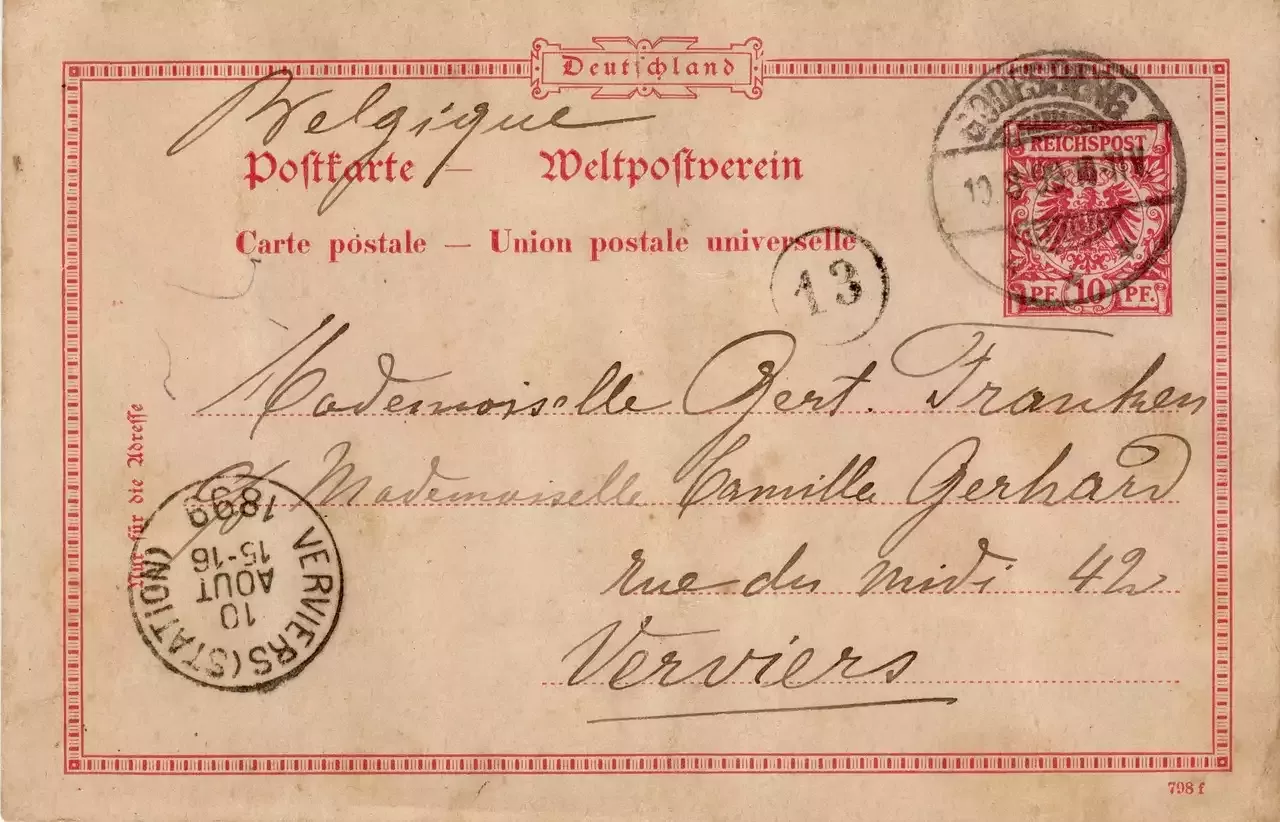 Deutschland
Belgique
Postkarte — Weltpostverein
Carte postale — Union postale universelle
GODESBERG
REICHSPOST
PF. 10 PF.
13
Mademoiselle Gert. Franken
c/o Mademoiselle Camille Gerhard
rue du midi 42
Verviers
Nur für die Adresse
VERVIERS (STATION)
10
AOUT
15-16
1899
798 f